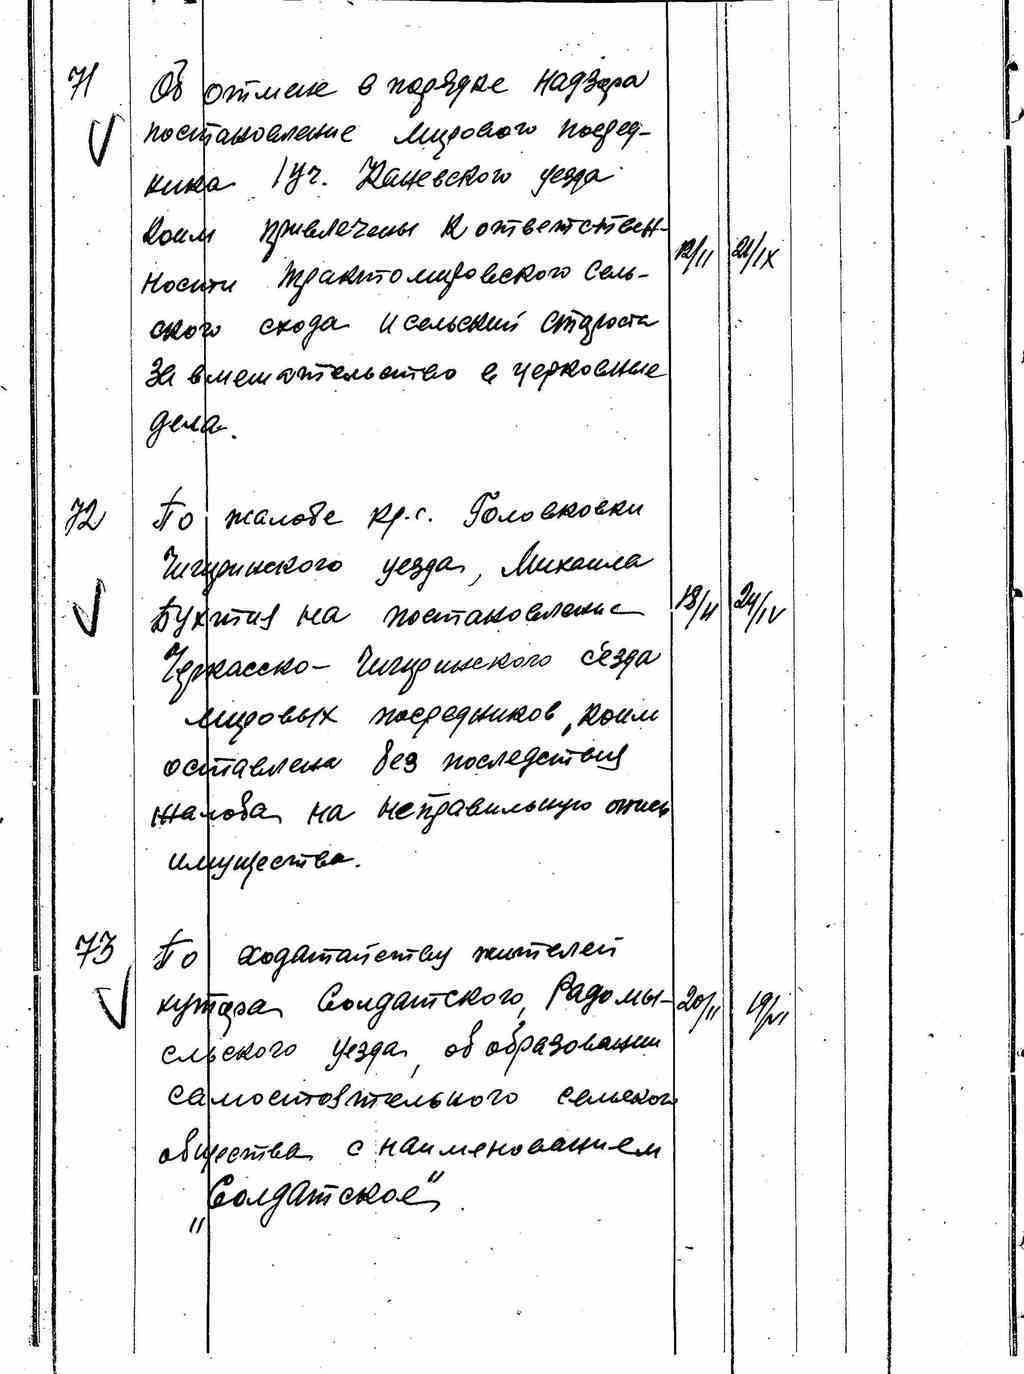 71 Об отмене в порядке надзора
постановление мирового посред-
ника 1 уч. Каневского уезда
коим привлечены к ответствен-
ности Трактомировского сель- 12/II 21/IX
ского схода и сельский староста
за вмешательство в церковные
дела.
72 По жалобе кр. с. Головковки
Чигиринского уезда, Михаила
на постановление 18/II 24/IV
Черкасско-Чигиринского съезда
мировых посредников, коим
оставлена без последствия
жалоба на неправильную опись
имущества.
73 По ходатайству жителей
хутора Солдатского, Радомы- 20/II 19/VI
сльского уезда, об образовании
самостоятельного сельского
общества с наименованием
„Солдатское"